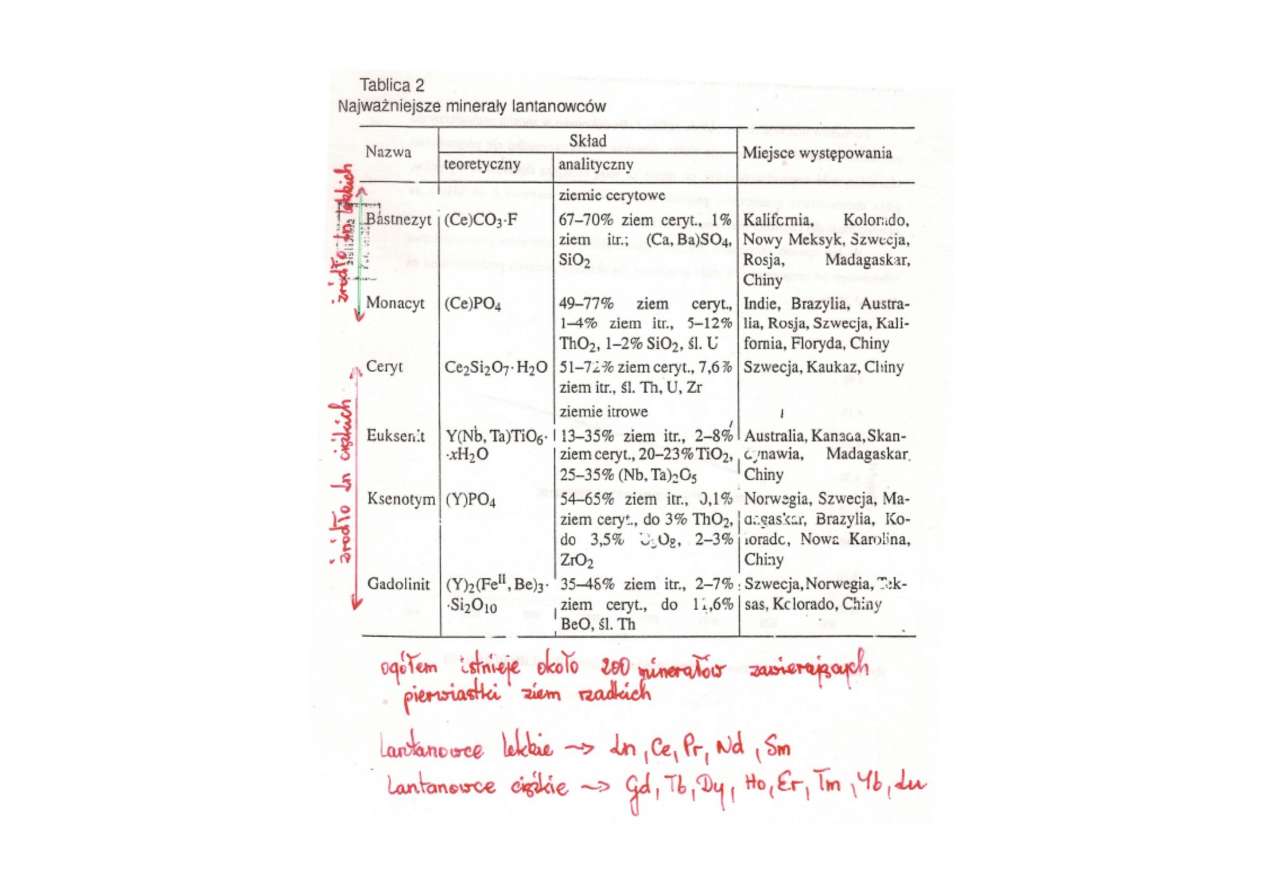 Tablica 2
Najważniejsze minerały lantanowców
Nazwa
Skład
teoretyczny
analityczny
Miejsce występowania
ziemie cerytowe
Bastnezyt
(Ce)CO₃·F
67–70% ziem ceryt., 1%
ziem itr.; (Ca, Ba)SO₄,
SiO₂
Kalifornia, Kolorado,
Nowy Meksyk, Szwecja,
Rosja, Madagaskar,
Chiny
Monacyt
(Ce)PO₄
49–77% ziem ceryt.,
1–4% ziem itr., 5–12%
ThO₂, 1–2% SiO₂, śl. U
Indie, Brazylia, Austra-
lia, Rosja, Szwecja, Kali-
fornia, Floryda, Chiny
Ceryt
Ce₂Si₂O₇·H₂O
51–72% ziem ceryt., 7,6%
ziem itr., śl. Th, U, Zr
Szwecja, Kaukaz, Chiny
ziemie itrowe
Euksenit
Y(Nb, Ta)TiO₆·
·xH₂O
13–35% ziem itr., 2–8%
ziem ceryt., 20–23% TiO₂,
25–35% (Nb, Ta)₂O₅
Australia, Kanada, Skan-
dynawia, Madagaskar
Chiny
Ksenotym
(Y)PO₄
54–65% ziem itr., 0,1%
ziem ceryt., do 3% ThO₂,
do 3,5% U₃O₈, 2–3%
ZrO₂
Norwegia, Szwecja, Ma-
dagaskar, Brazylia, Ko-
lorado, Nowa Karolina,
Chiny
Gadolinit
(Y)₂(Feᴵᴵ, Be)₃·
·Si₂O₁₀
35–48% ziem itr., 2–7%
ziem ceryt., do 11,6%
BeO, śl. Th
Szwecja, Norwegia, Tek-
sas, Kolorado, Chiny
źródło Ln lekkich
źródło Ln ciężkich
ogółem istnieje około 200 minerałów zawierających
pierwiastki ziem rzadkich
Lantanowce lekkie → Ln, Ce, Pr, Nd, Sm
Lantanowce ciężkie → Gd, Tb, Dy, Ho, Er, Tm, Yb, Lu